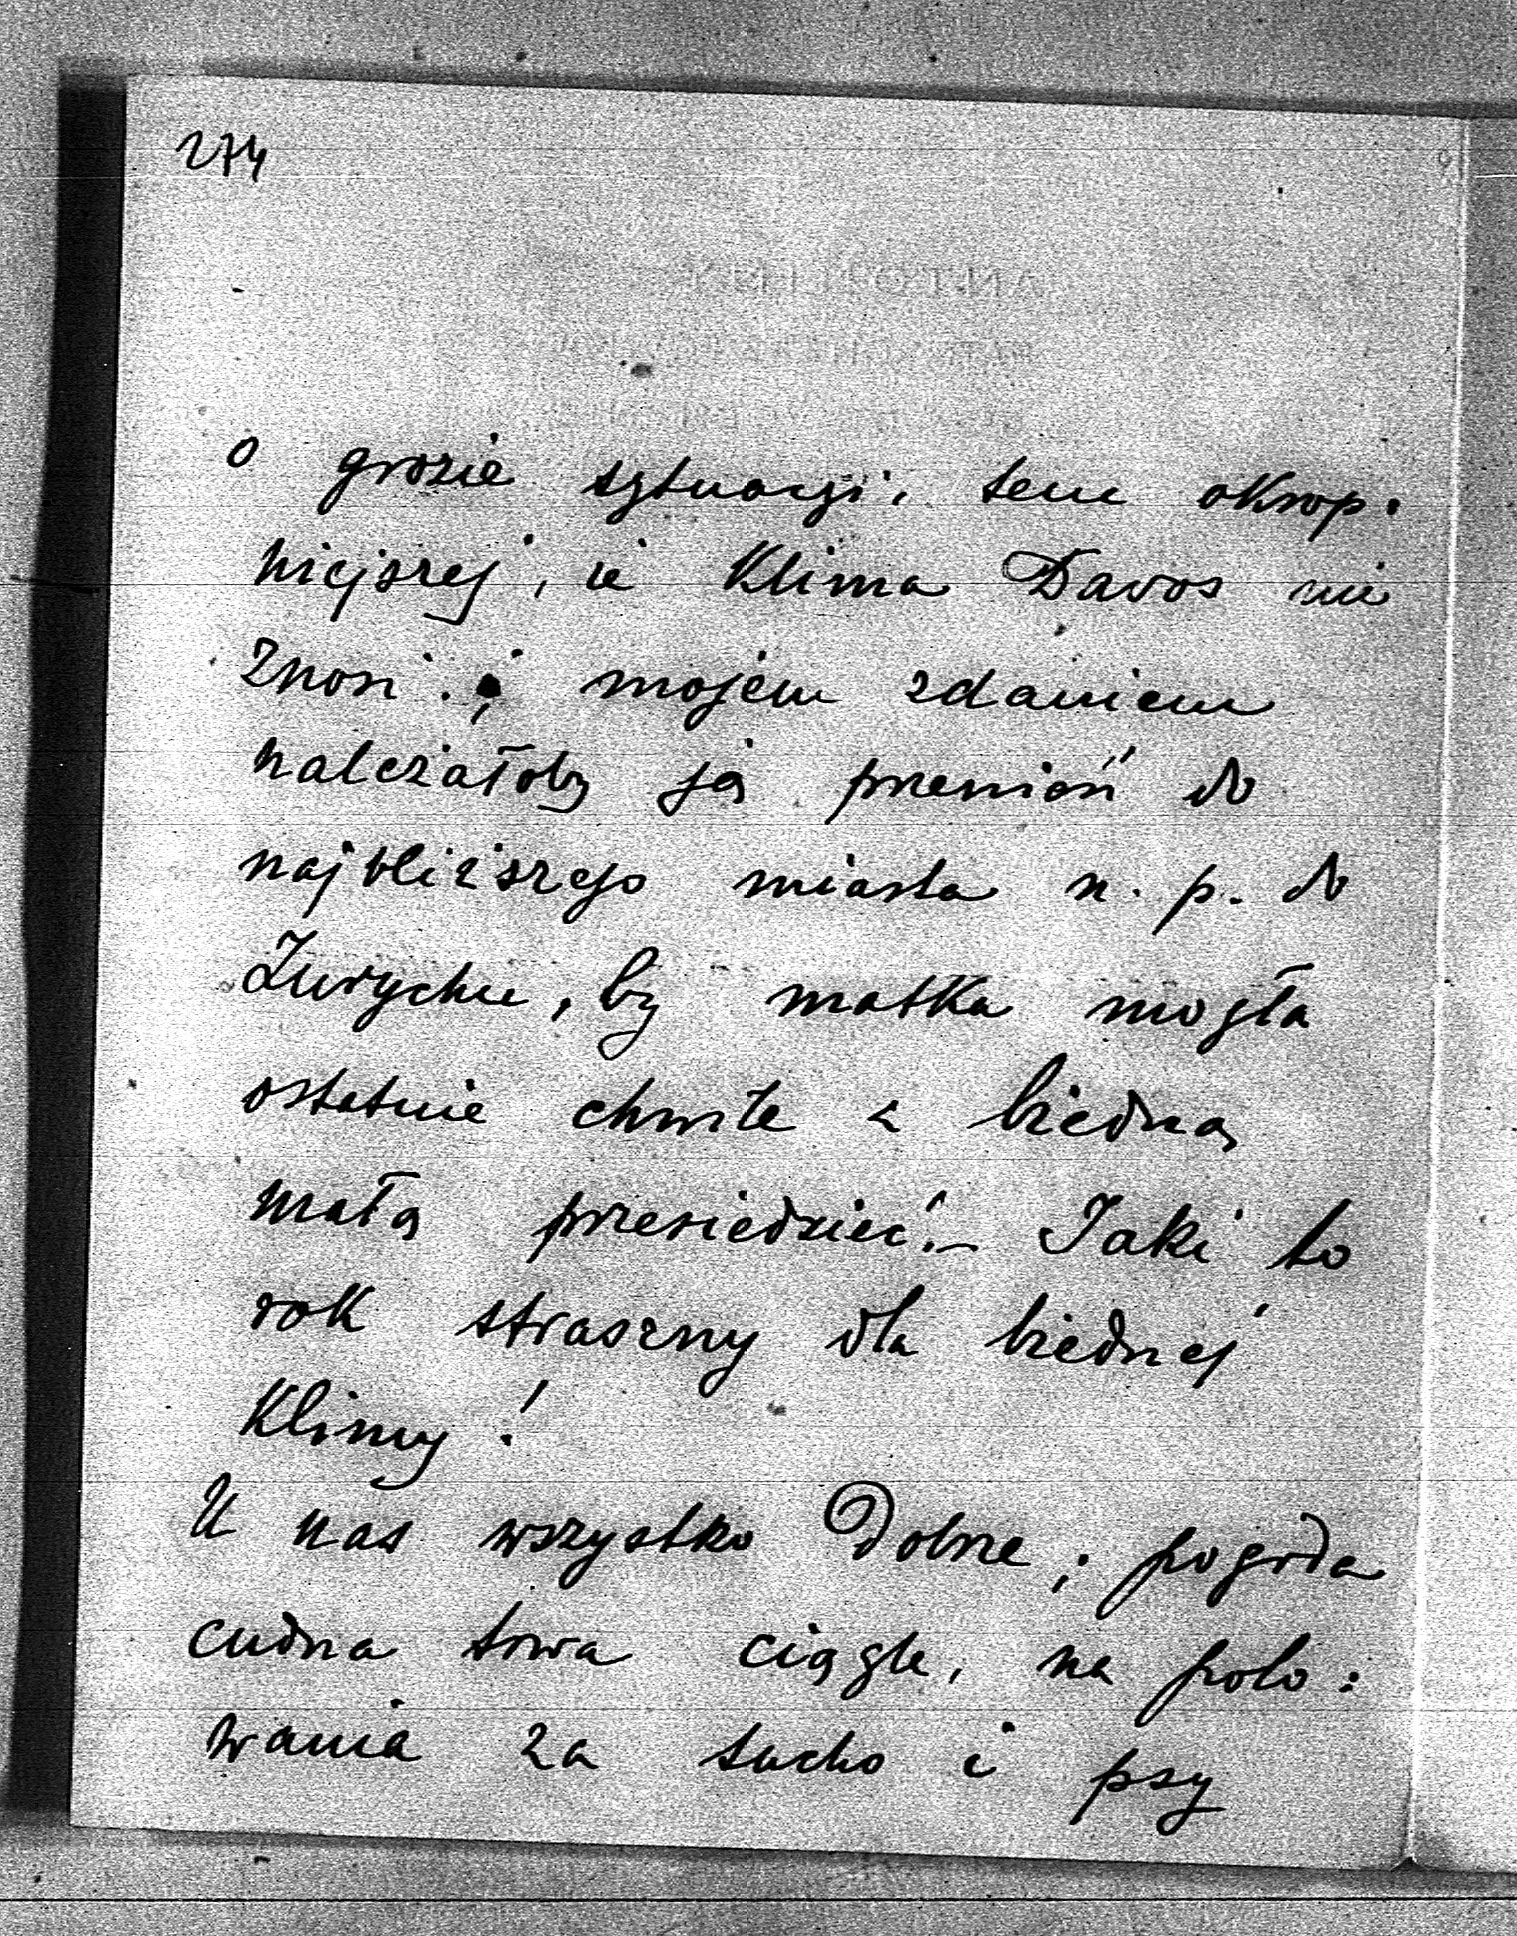 274
o grozie sytuacyi, tem okrop:
niejszej, że Klima Davos nie
znosi; mojem zdaniem
należałoby ją przenieść do
najbliższego miasta n. p. do
Zurychu, by matka mogła
ostatnie chwile z biedną
małą przesiedzieć. – Jaki to
rok straszny dla biednej
Klimy!
U nas wszystko Dobrze; pogoda
cudna trwa ciągle, na polo:
wania za sucho i psy